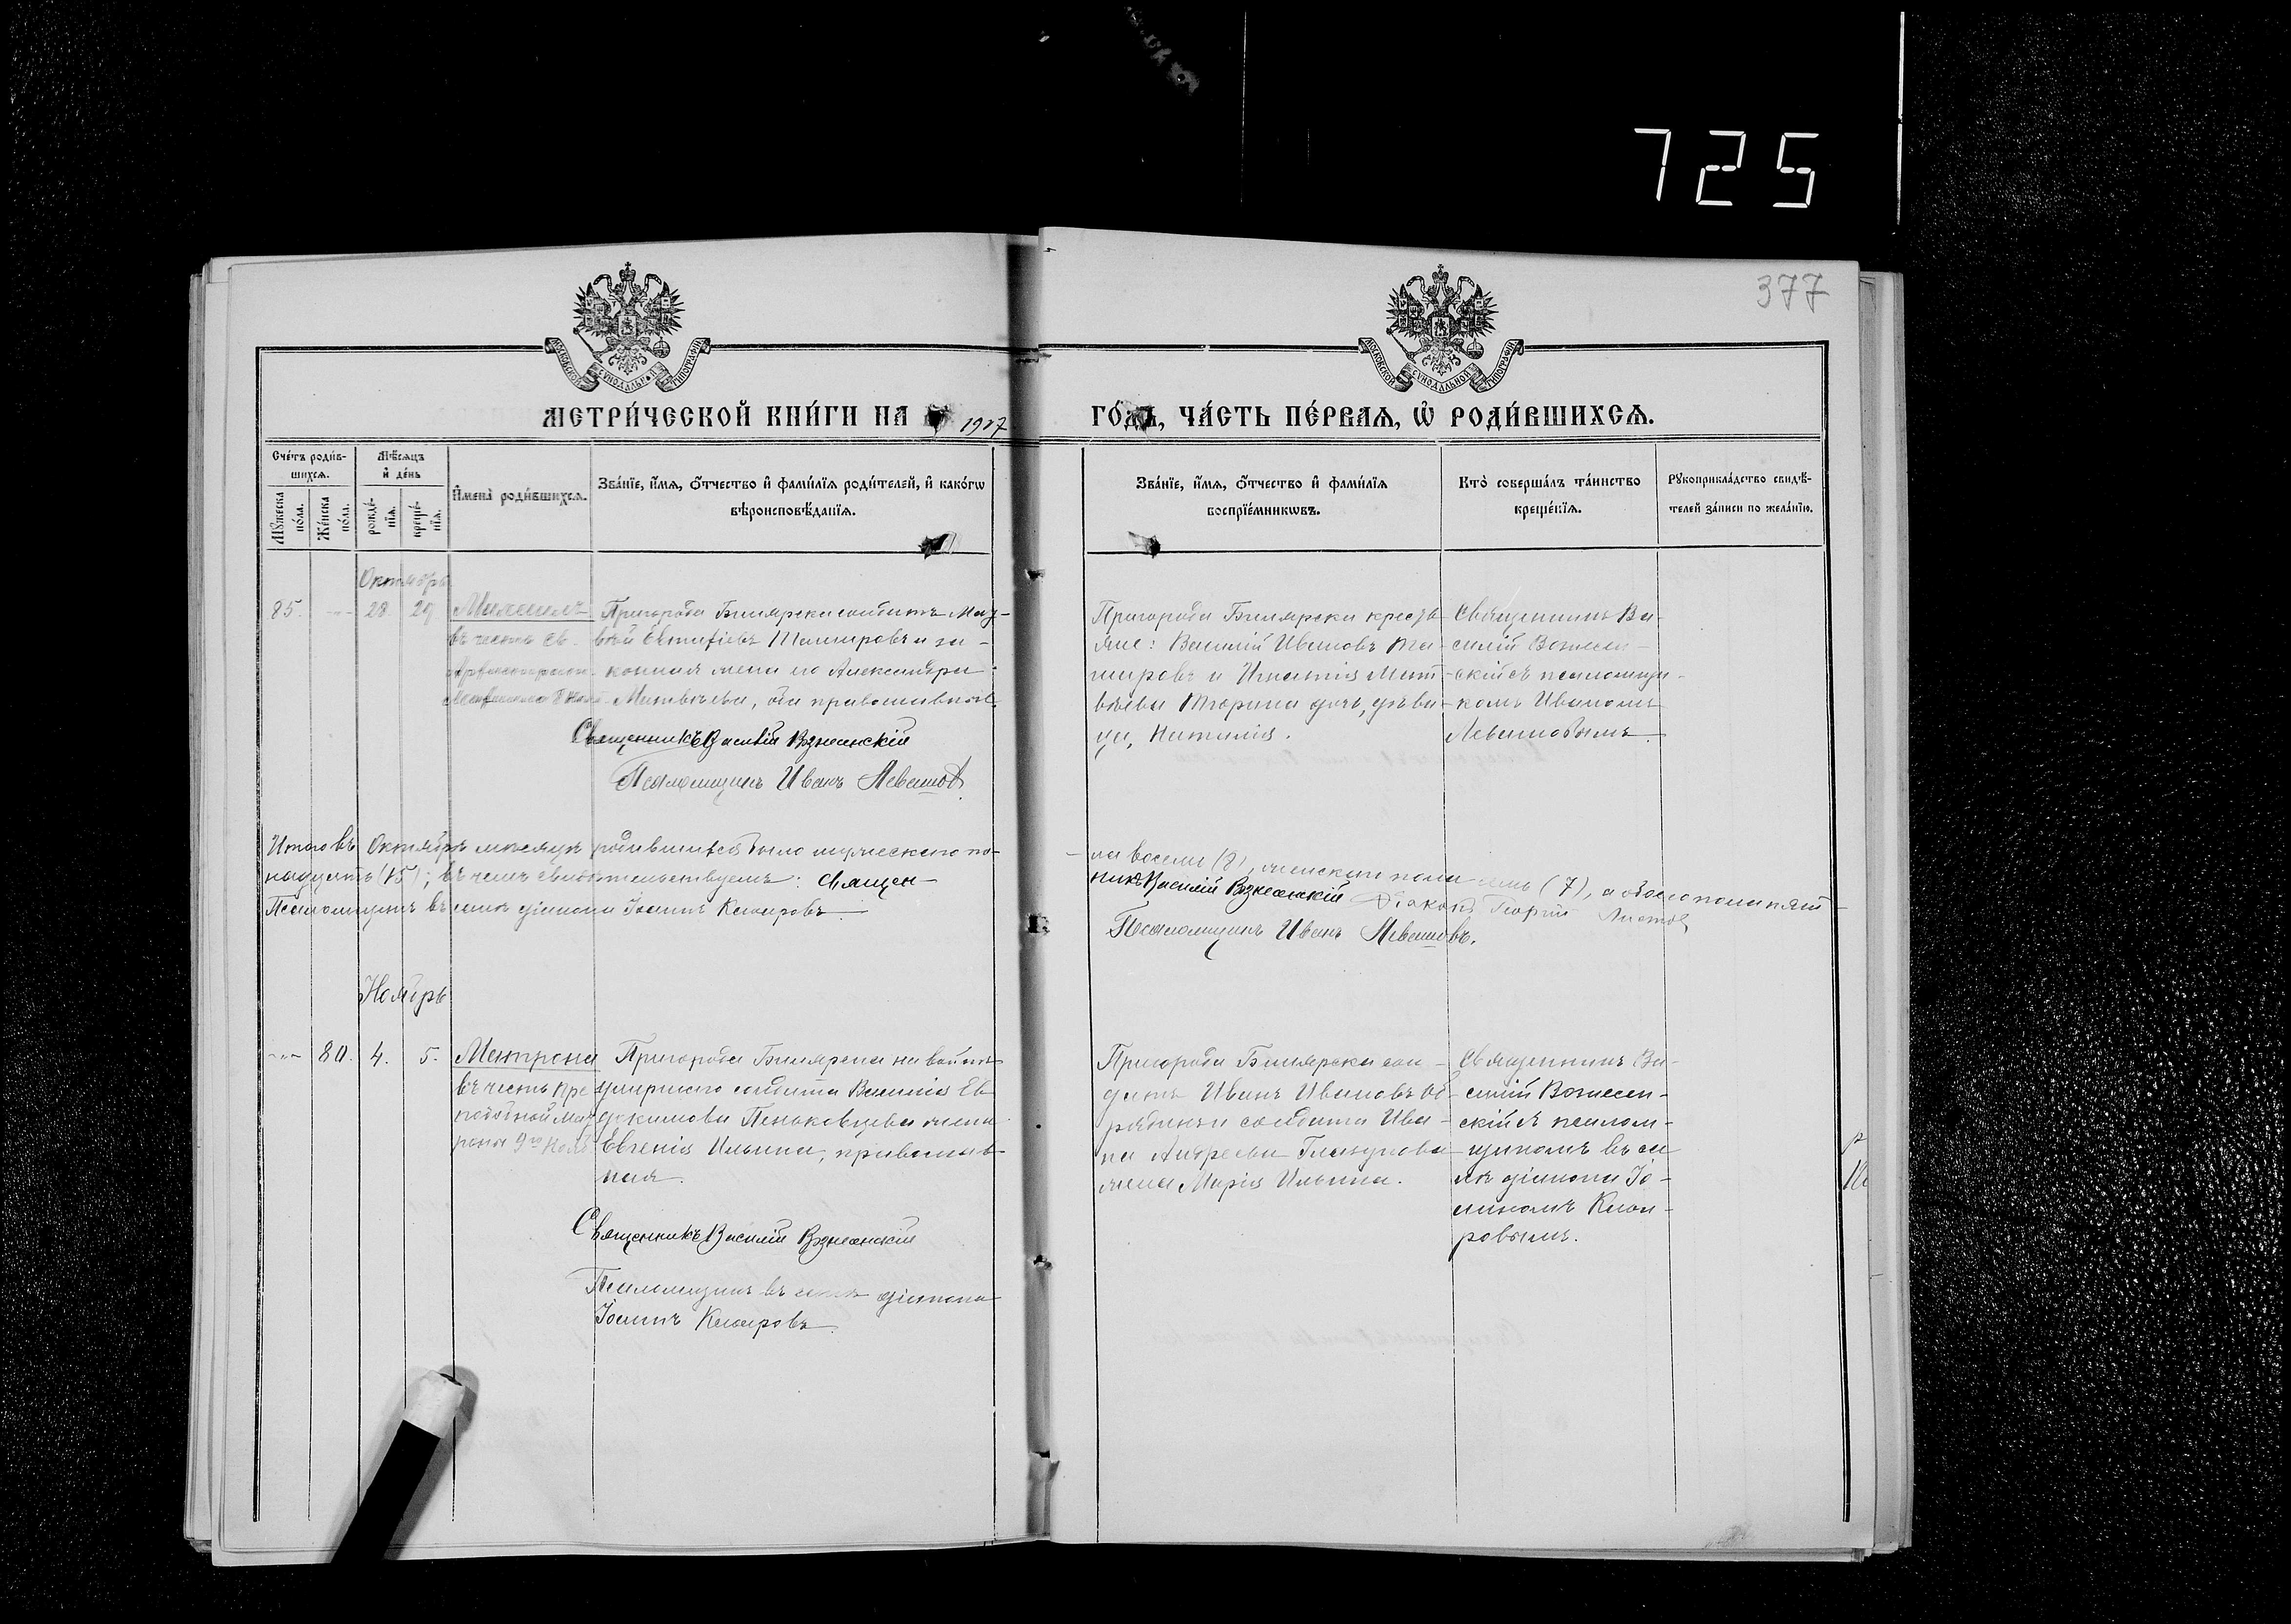 725
377
МОСКОВСКОЙ СѴНОДАЛЬНОЙ ТИПОГРАФІИ
МОСКОВСКОЙ СѴНОДАЛЬНОЙ ТИПОГРАФІИ
МЕТРИ́ЧЕСКОЙ КНИ́ГИ НА 1907
ГО́ДЪ, ЧА́СТЬ ПЕ́РВАЯ, Ѡ҆ РОДИ́ВШИХСѦ.
Сче́тъ роди́в-
шихсѧ.
Мꙋ́жеска
по́ла.
Же́нска
по́ла.
Мѣ́сѧцъ
и҆ де́нь
рожде́-
нїѧ.
креще́-
нїѧ.
И҆мена̀ роди́вшихсѧ.
Зва́нїе, и҆́мѧ, ѻ҆́тчество и҆ фами́лїѧ роди́телей, и҆ како́гѡ
вѣроисповѣ́данїѧ.
Зва́нїе, и҆́мѧ, ѻ҆́тчество и҆ фами́лїѧ
воспрїе́мникѡвъ.
Кто̀ соверша́лъ та́инство
креще́нїѧ.
Рꙋкоприкла́дство свидѣ́-
телей за́писи по жела́нїю.
Октябрь
85. 28 29 Михаилъ
въ честь св.
Пригорода Билярска солдатъ Мат-
вѣй Евтифіевъ Ташировъ и за-
конная жена его Александра
Матвѣева, оба православные.
Священникъ Василій Вознесенскій
Псаломщикъ Иванъ Левашовъ
Пригорода Билярска кресть-
яне: Василій Ивановъ Та-
шировъ и Игнатія Мат-
вѣева Тюрина дочь, дѣви-
ца, Наталія.
Священникъ Ва-
силій Вознесен-
скій съ псаломщи-
комъ Иваномъ
Левашовымъ.
Итого въ Октябрѣ мѣсяцѣ родившихся было мужескаго по-
ла восемь (8), женскаго пола семь (7), а обоего пола пят-
надцать (15); въ чемъ свидѣтельствуемъ: Священ-
никъ Василій Вознесенскій Діаконъ Георгій Листовъ
Псаломщикъ въ санѣ діакона Іоаннъ Кляровъ
Псаломщикъ Иванъ Левашовъ.
Ноябрь
80. 4. 5. Матрона
въ честь пре-
подобной Мат-
роны 9го Нояб.
Пригорода Билярска на войнѣ
умершаго солдата Василія Ев-
докимова Пеньковцева жена
Евгенія Ильина, православ-
ная.
Священникъ Василій Вознесенскій
Псаломщикъ въ санѣ діакона
Іоаннъ Кляровъ.
Пригорода Билярска сол-
датъ Иванъ Ивановъ Об-
рядинъ и солдата Ива-
на Андреева Глазунова
жена Марія Ильина.
Священникъ Ва-
силій Вознесен-
скій съ псалом-
щикомъ въ са-
нѣ діакона Іо-
анномъ Кля-
ровымъ.